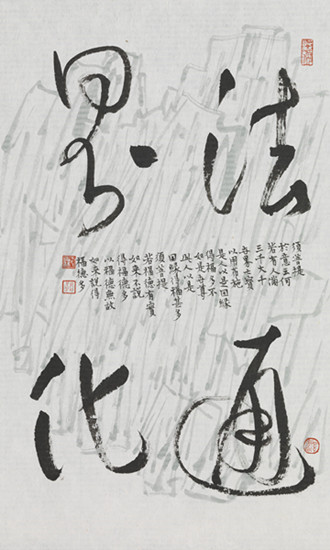 法界
通化
須菩提
於意云何
若有人滿
三千大千
世界七寶
以用布施
是人以是因緣
得福多不
如是世尊
此人以是
因緣得福甚多
須菩提
若福德有實
如來不說
得福德多
以福德無故
如來說得
福德多